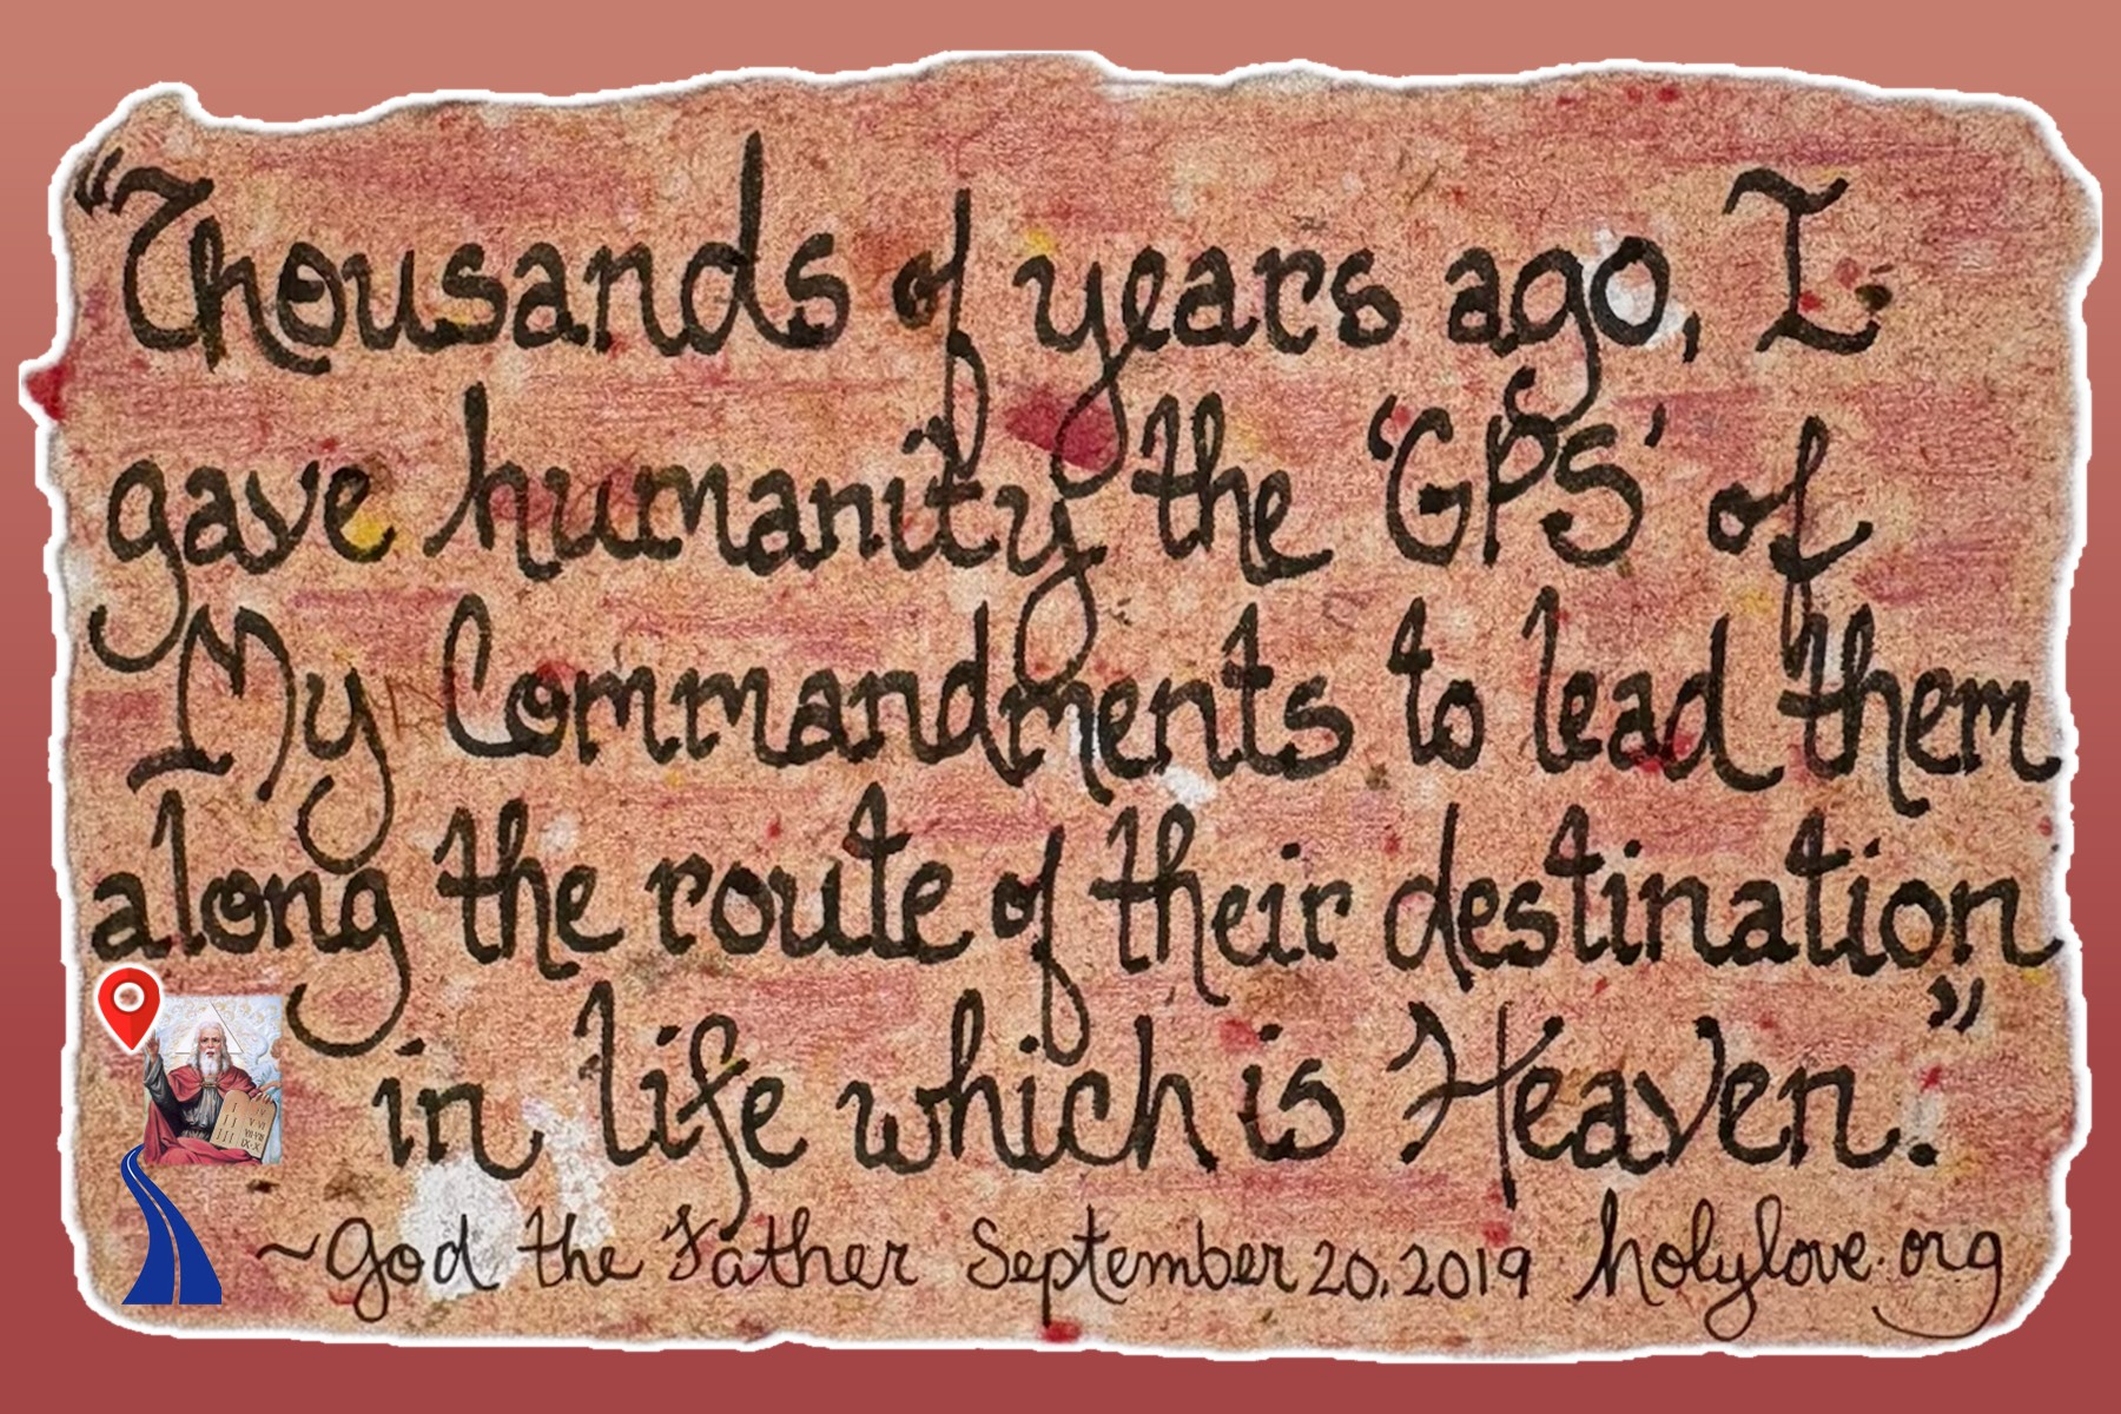 “Thousands of years ago, I
gave humanity the ‘GPS’ of
My Commandments to lead them
along the route of their destination
in life which is Heaven.”
~God the Father September 20, 2019 holylove.org